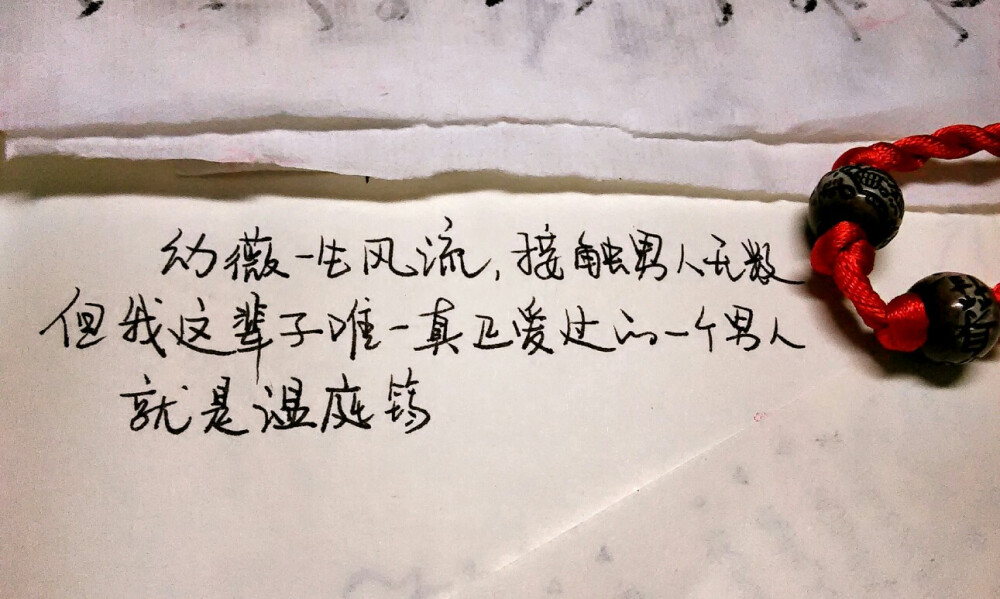 幼薇一生风流,接触男人无数
但我这辈子唯一真正爱过的一个男人
就是温庭筠